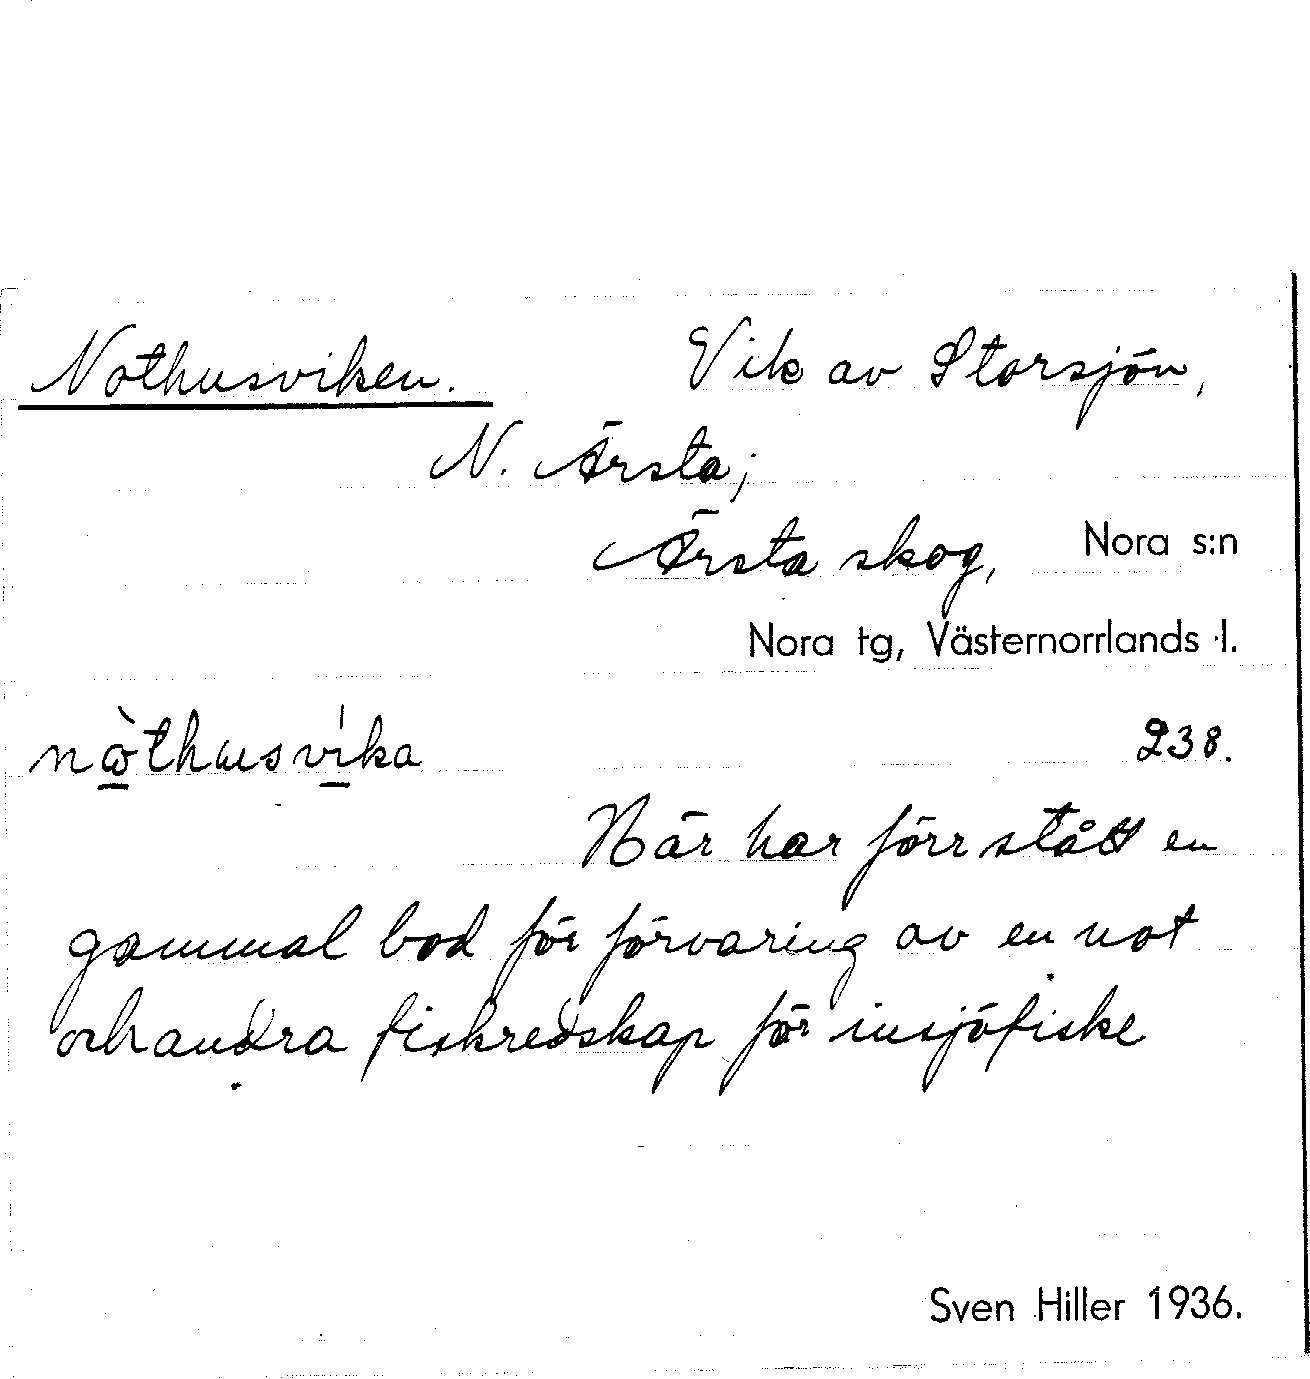 Nothusviken. Vik av Storsjön,
N. Ärsta;
Ärsta skog, Nora s:n
Nora tg, Västernorrlands l.
nὼthusvi̍ka 238.
Här har förr stått en
gammal bod för förvaring av en not
och andra fiskredskap för insjöfiske
Sven Hiller 1936.